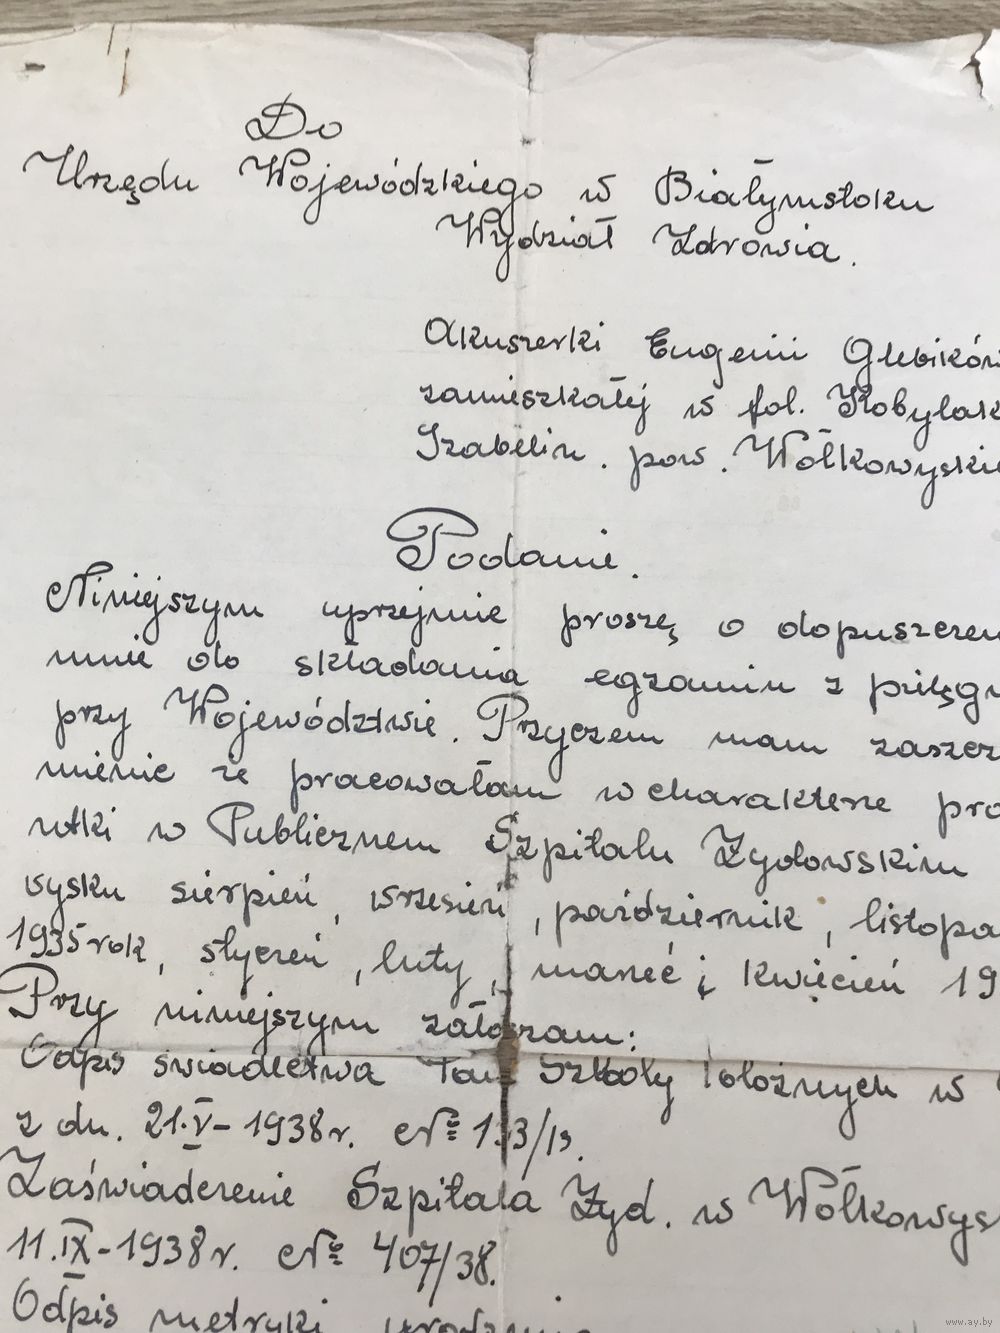 Do
Urzędu Wojewódzkiego w Białymstoku
Wydział Zdrowia.
Akuszerki Eugenii Głebików
zamieszkałej w fol. Kobylak
Izabelin. pow. Wołkowyskie
Podanie.
Niniejszym uprzejmie proszę o dopuszczen
mnie do składania egzamin z pielęgn
przy Województwie. Przyczem mam zaszcz
mienie ze pracowałam w charakterze pra
ntki w Publicznem Szpitalu Żydowskim
wysku sierpień, wrzesień, październik, listopa
1935 rok, styczeń, luty, marzec i kwiecień 19
Przy niniejszym załaczam:
Odpis świadectwa Szkoły Położnych w
z dn. 21.V-1938r. № 1 3/
Zaświadczenie Szpitala Żyd. w Wołkowys
11.IX-1938r. № 407/38.
Odpis metryki urodzenia
www.ay.by